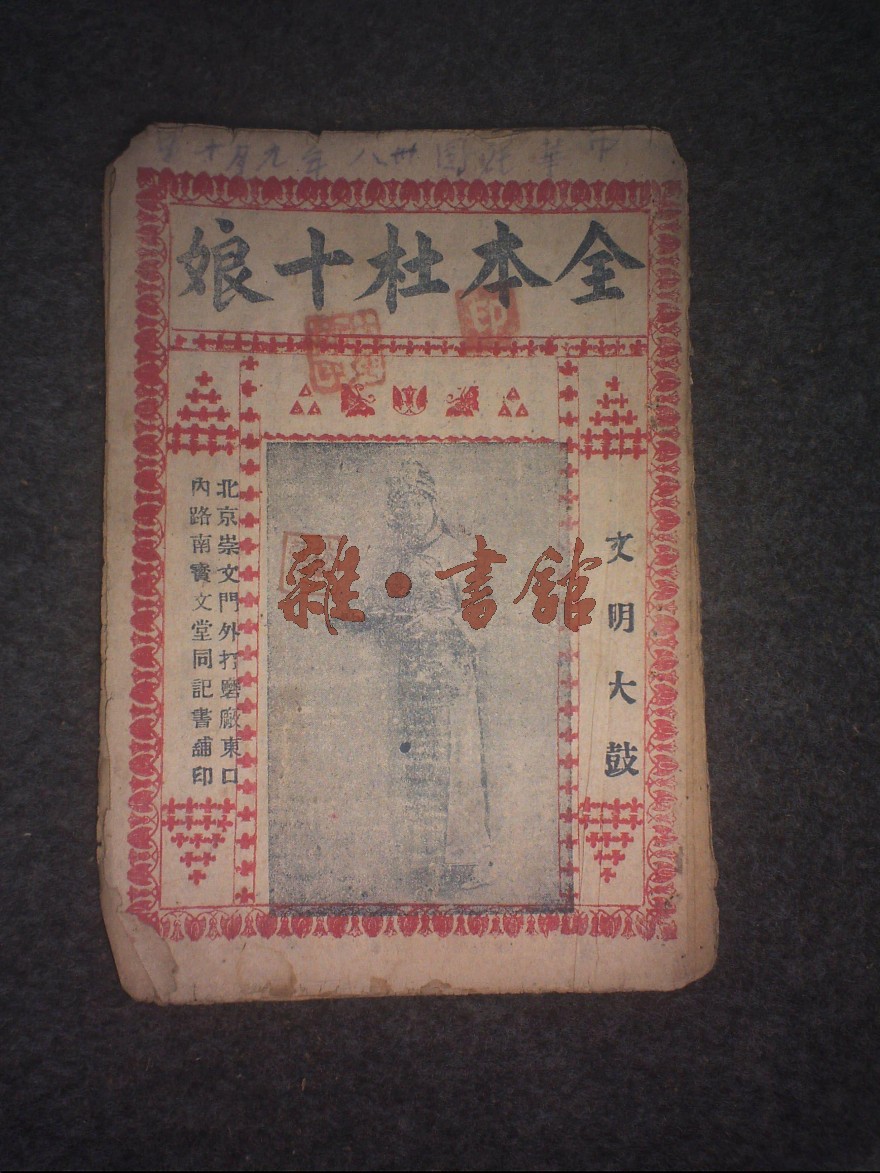 中華民國卅八年九月十
全本杜十娘
印
文明大鼓
雜·書舘
北京崇文門外打磨廠東口
內路南寳文堂同記書舖印